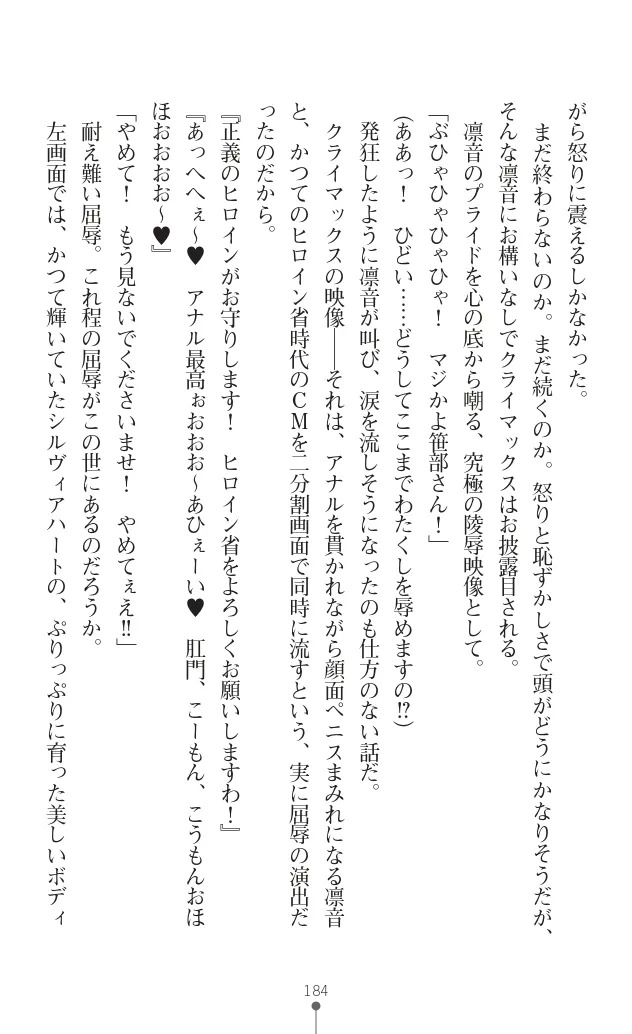 がら怒りに震えるしかなかった。
まだ終わらないのか。まだ続くのか。怒りと恥ずかしさで頭がどうにかなりそうだが、
そんな凛音にお構いなしでクライマックスはお披露目される。
凛音のプライドを心の底から嘲る、究極の陵辱映像として。
「ぶひゃひゃひゃひゃ！　マジかよ笹部さん！」
(ああっ！　ひどい……どうしてここまでわたくしを辱めますの!?)
発狂したように凛音が叫び、涙を流しそうになったのも仕方のない話だ。
クライマックスの映像――それは、アナルを貫かれながら顔面ペニスまみれになる凛音
と、かつてのヒロイン省時代のＣＭを二分割画面で同時に流すという、実に屈辱の演出だ
ったのだから。
『正義のヒロインがお守りします！　ヒロイン省をよろしくお願いしますわ！』
『あっへへぇ～♥　アナル最高ぉおおお～あひぇーい♥　肛門、こーもん、こうもんおほ
ほおおおお～♥』
「やめて！　もう見ないでくださいませ！　やめてぇえ!!」
耐え難い屈辱。これ程の屈辱がこの世にあるのだろうか。
左画面では、かつて輝いていたシルヴィアハートの、ぷりっぷりに育った美しいボディ
184